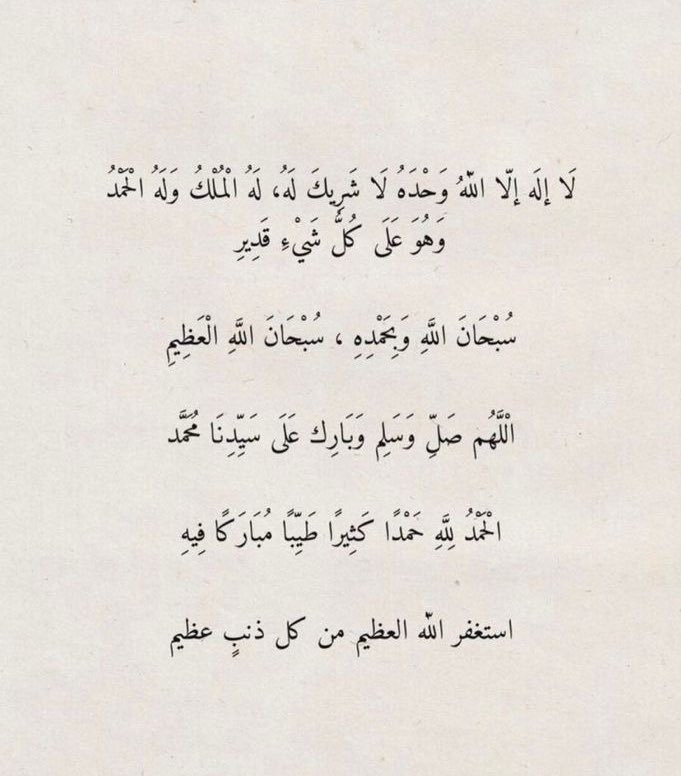 لَا إلَه إلّا اللهُ وَحْدَهُ لَا شَرِيكَ لَهُ، لَهُ الْمُلْكُ وَلَهُ الْحَمْدُ
وَهُوَ عَلَى كُلِّ شَيْءٍ قَدِيرِ
سُبْحَانَ اللَّهِ وَبِحَمْدِهِ ، سُبْحَانَ اللَّهِ الْعَظِيمِ
الْلَّهُم صَلِّ وَسَلِم وَبَارِك عَلَى سَيِّدِنَا مُحَمَّد
الْحَمْدُ لِلَّهِ حَمْدًا كَثِيرًا طَيِّبًا مُبَارَكًا فِيهِ
استغفر الله العظيم من كل ذنبٍ عظيم